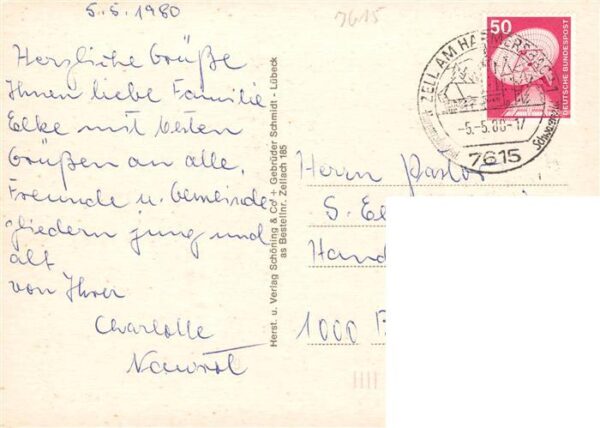 5.5.1980
7615
Herzliche Grüße
Ihnen liebe Familie
Elke mit besten
Grüßen an alle,
Freunde u. Gemeinde
gliedern jung und
alt
von Ihrer
Charlotte
Nawrot
Herst. u. Verlag Schöning & Co + Gebrüder Schmidt - Lübeck
as Bestellnr. Zellach 185
50
DEUTSCHE BUNDESPOST
ZELL AM HARMERSBACH 1
-5.-5.80-17
7615
Herrn Pastor
S. El
Hand
1000 B